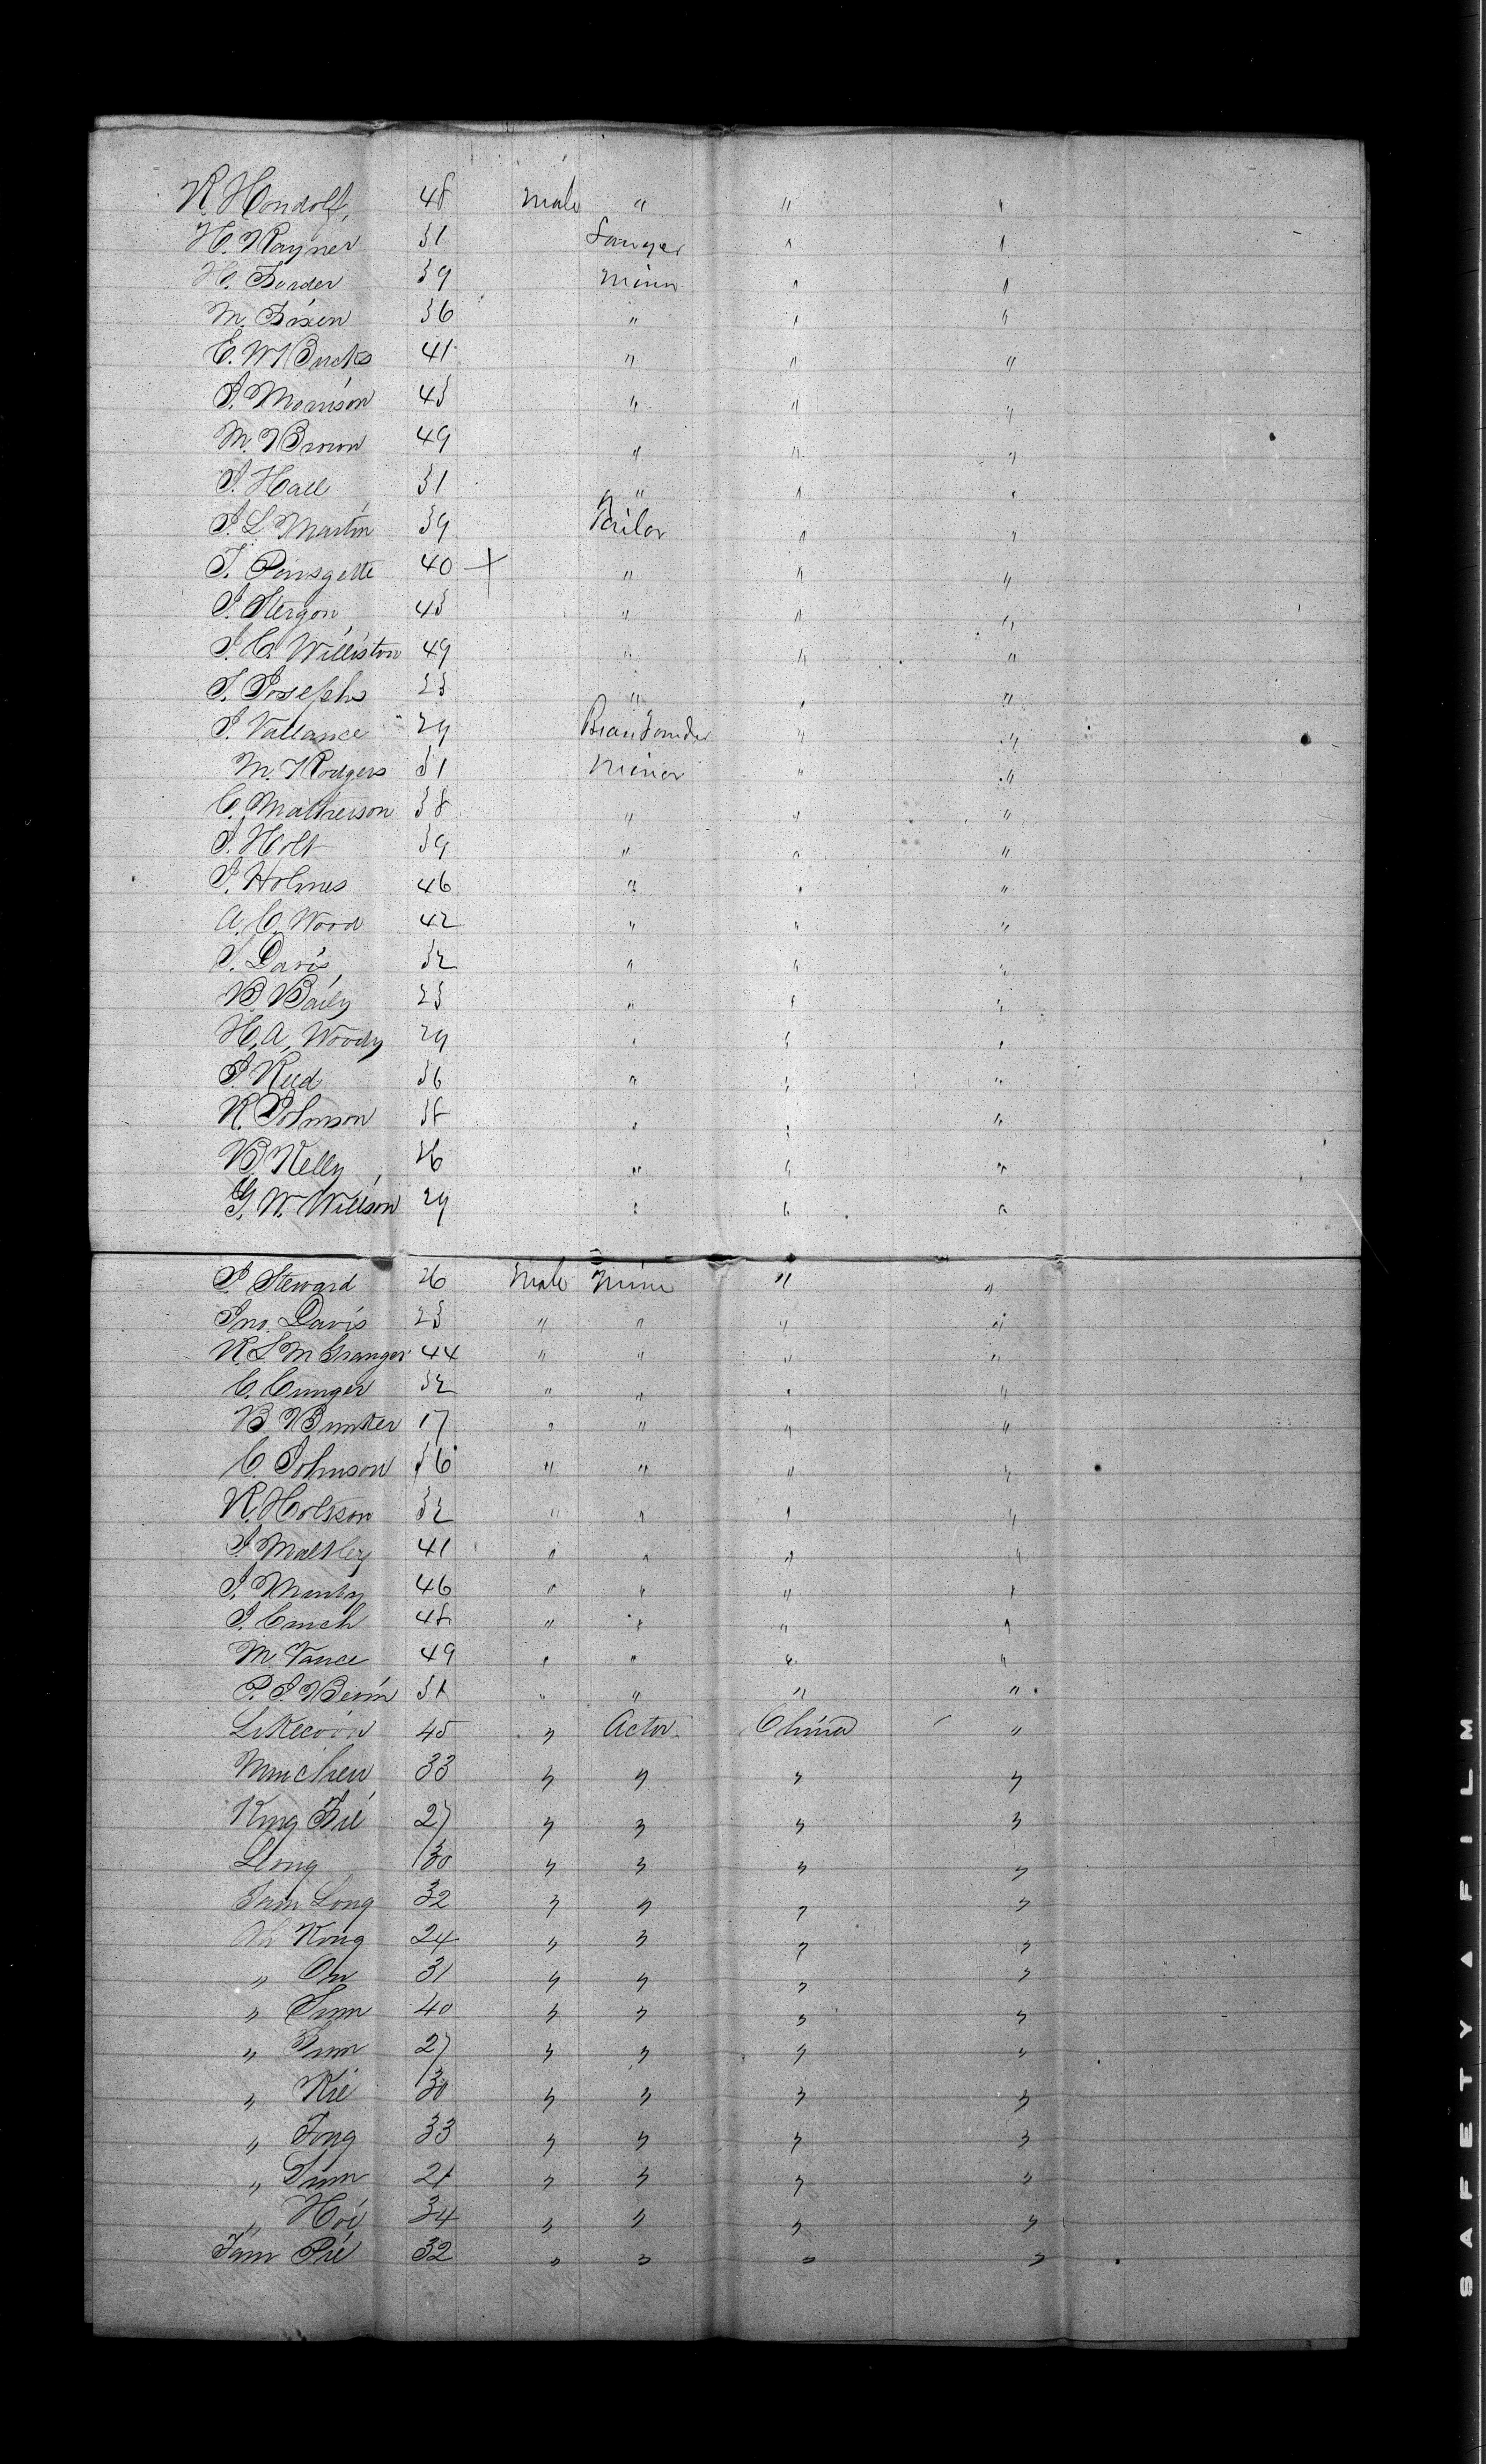 R. Hondolf, 48 Male " " "
H. Rayner 31 Lawyer " "
H. Border 39 Miner " "
M. Bixen 36 " " "
E. W. Bucks 41 " " "
J. Morrison 43 " " "
M. Brown 49 " " "
J. Hall 31 " " "
J. L. Martin 39 Tailor " "
T. Poinsgette 40 + " " "
J. Stergon 43 " " "
J. C. Williston 49 " " "
T. Josephs 23 " " "
J. Vallance 29 " "
M. Rodgers 31 Miner " "
C. Matherson 38 " " "
J. Holt 39 " " "
J. Holmes 46 " " "
A. C. Wood 42 " " "
J. Davis 32 " " "
B. Baily 23 " " "
H. A. Woody 29 " " "
J. Reed 36 " " "
R. Johnson 38 " " "
B. Kelly 26 " " "
G. W. Willson 29 " " "
J. Steward 26 Male Miner " "
Jno. Davis 23 " " " "
R. L. M. Granger 44 " " " "
C. Cunger 32 " " " "
B. Bunker 17 " " " "
C. Johnson 36 " " " "
R. Holsson 32 " " " "
J. Maltley 41 " " " "
J. Manby 46 " " " "
J. Cinch 48 " " " "
M. Vance 49 " " " "
P. J. Bevin 31 " " " "
Likecoon 45 " Actor China "
Munchew 33 " " " "
King 27 " " " "
Leong 30 " " " "
Long 32 " " " "
Ah Kong 24 " " " "
" On 31 " " " "
" Sum 40 " " " "
" 27 " " " "
" Kie 30 " " " "
" Fong 33 " " " "
" 21 " " " "
" Hoi 34 " " " "
Tam Pie 32 " " " "
SAFETY A FILM